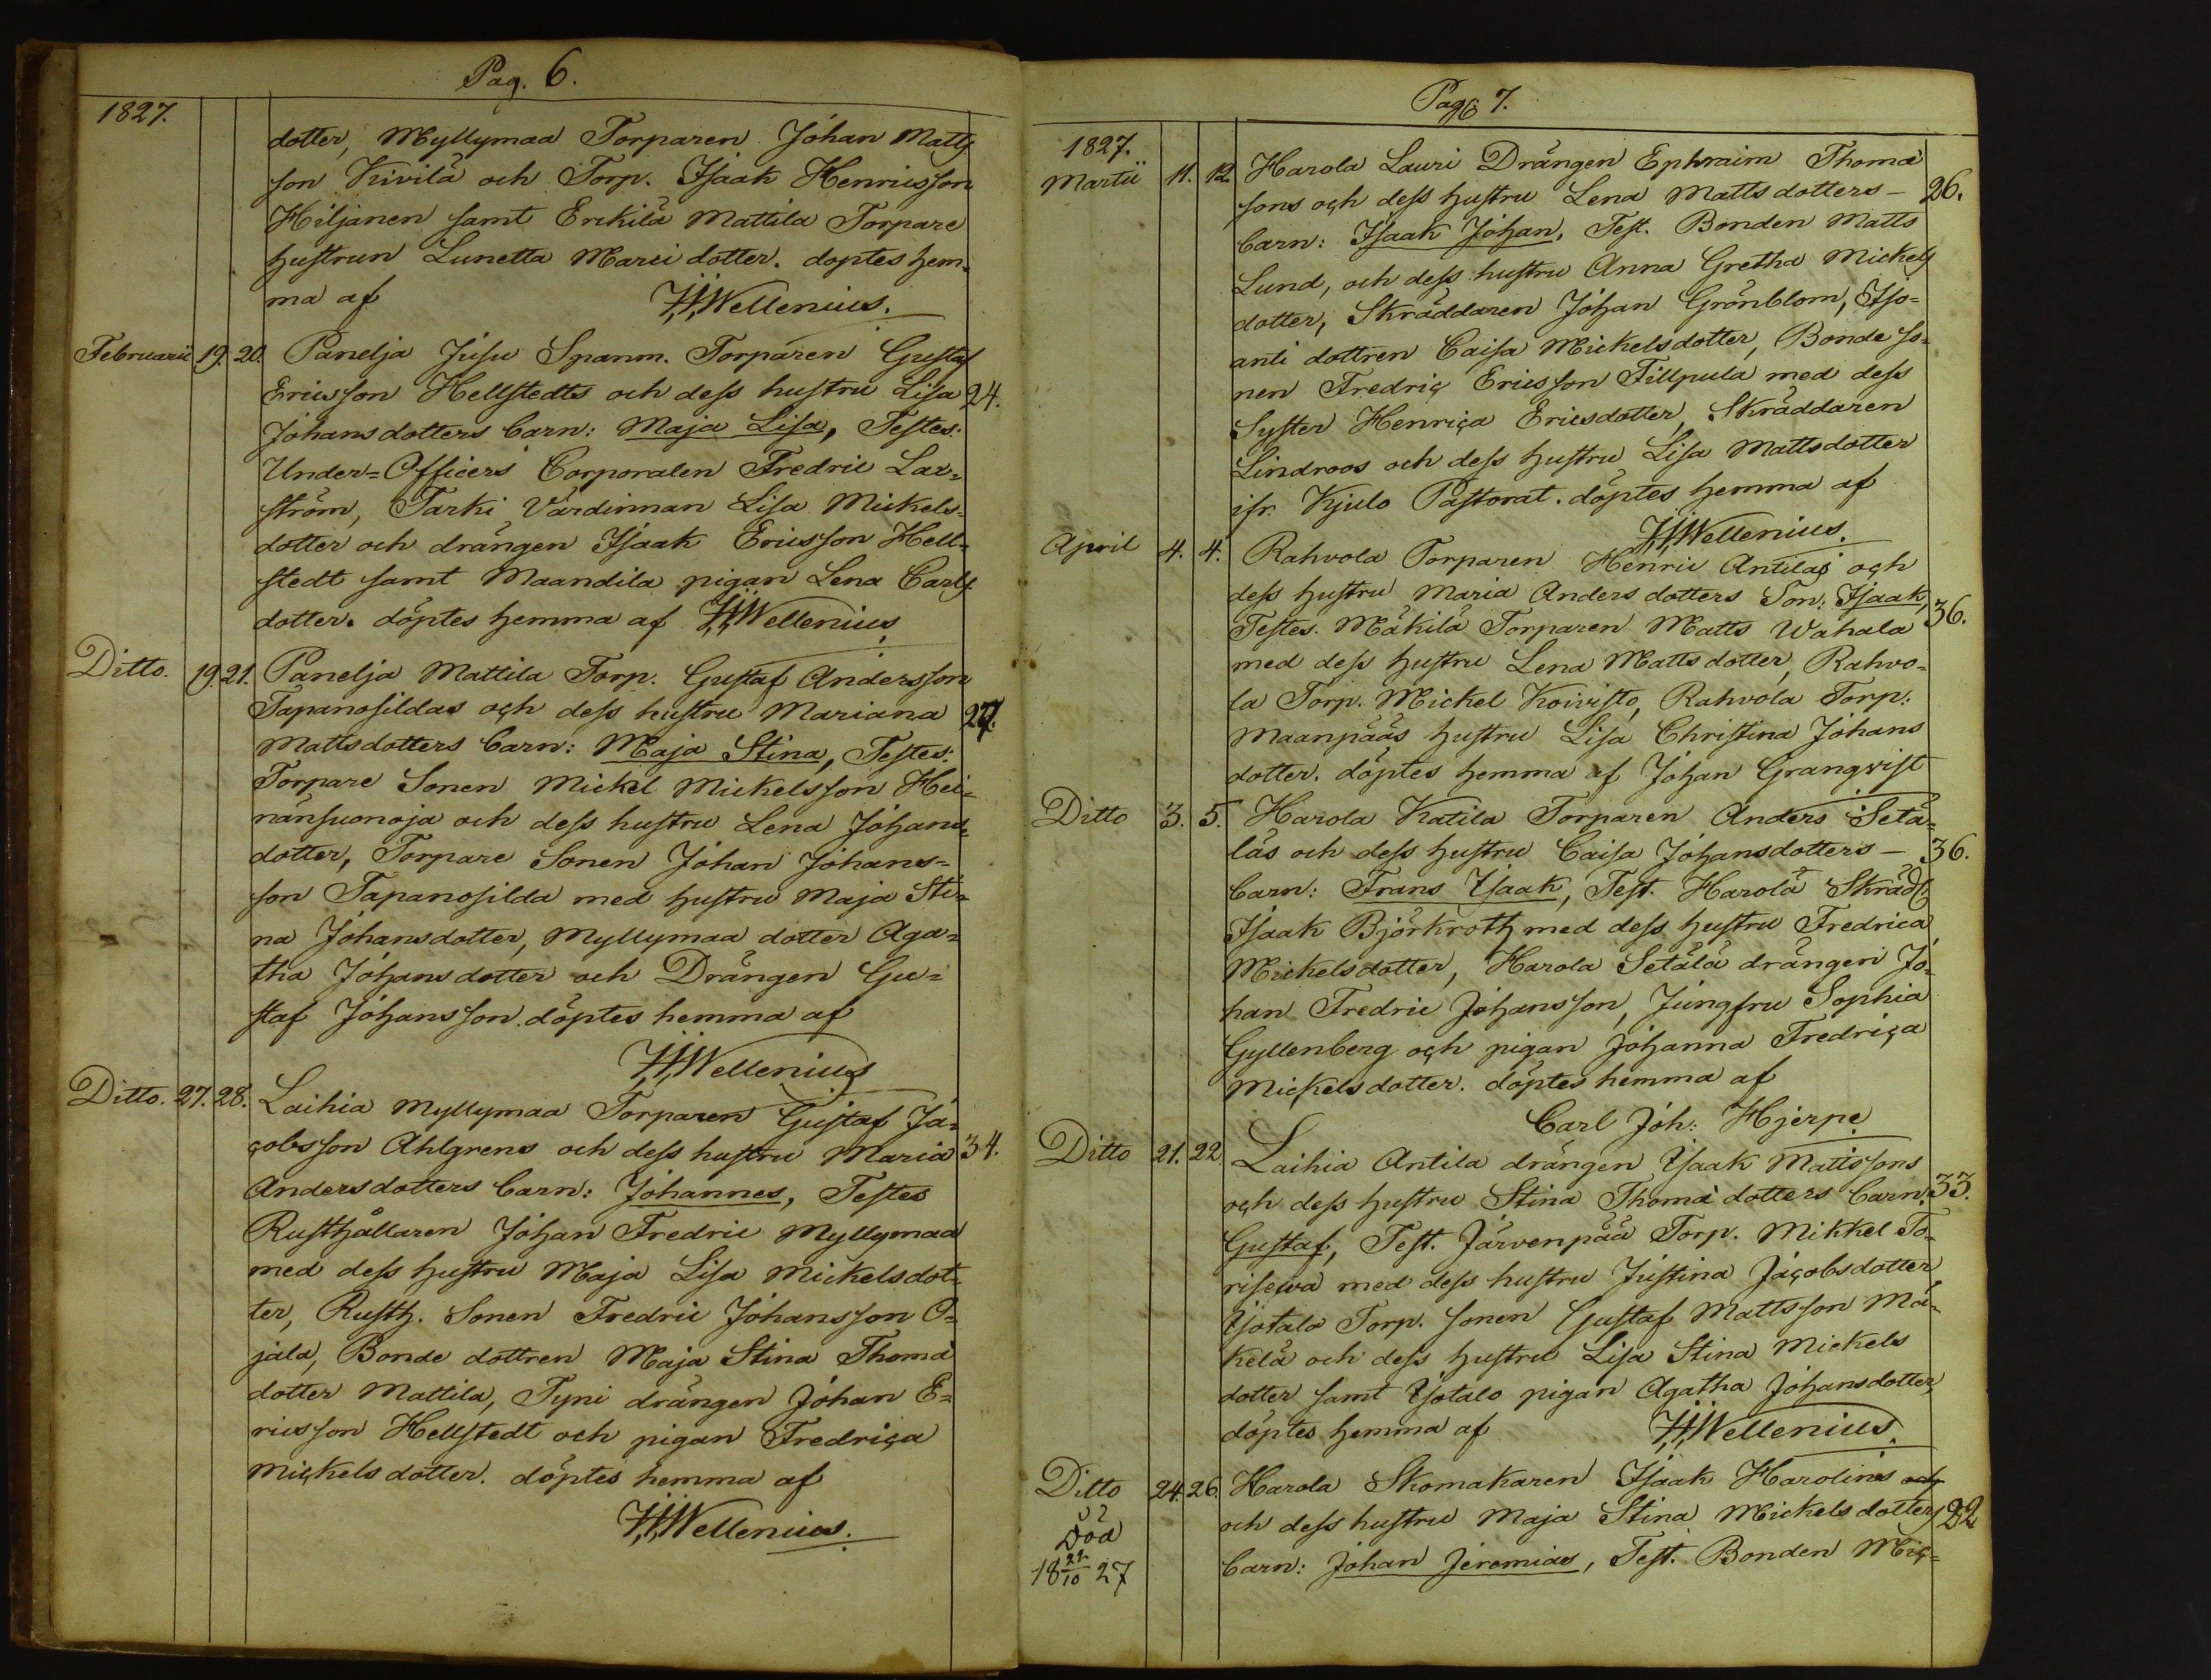 Pag. 6.
1827.
dotter, Myllymaa Torparen Johan Matts
son Kivilä och Torp. Isaak Henricsson
Hiljanen samt Erkilä Mattila Torpare
hustrun Lunetta Marci dotter. doptes hem-
ma af H.H. Wellenius.
Februarii 19. 20. Panelja Jusu Spanm. Torparen Gustaf
Ericsson Hellstedts och dess hustru Lisa 24.
Johansdotters barn: Maja Lisa, Testes:
Under=Officers Corporalen Fredric Lax-
ström, Tarki Värdinnan Lisa Mickels-
dotter och drängen Isaak Ericsson Hell-
stedt samt Maandila pigan Lena Carls
dotter. döptes hemma af H.H. Wellenius
Ditto. 19. 21. Panelja Mattila Torp. Gustaf Andersson
Tapanosildas och dess hustru Mariana 27.
Mattsdotters barn: Maja Stina, Testes:
Torpare Sonen Mickel Mickelsson Hei-
nänsuonoja och dess hustru Lena Johans-
dotter, Torpare Sonen Johan Johans-
son Tapanosilda med hustru Maja Sti-
na Johansdotter, Myllymaa dotter Aga-
tha Johansdotter och Drängen Gu=
staf Johansson. döptes hemma af
H.H. Wellenius
Ditto. 27. 28. Laihia Myllymaa Torparen Gustaf Ja-
cobsson Ahlgrens och dess hustru Maria 34.
Andersdotters barn: Johannes, Testes
Rusthållaren Johan Fredric Myllymaa
med dess hustru Maja Lisa Mickelsdot-
ter, Rusth. Sonen Fredric Johansson O-
jala, Bonde dottren Maja Stina Thomä
dotter Mattila, Tyni drängen Johan E=
ricsson Hellstedt och pigan Fredrica
Mickelsdotter. döptes hemma af
H.H. Wellenius.
Pag. 7.
1827.
Martii 11. 12. Harola Lauri Drängen Ephraim Thomä
sons och dess hustru Lena Mattsdotters - 26.
barn: Isaak Johan, Test. Bonden Matts
Lund, och dess hustru Anna Gretha Mickels
dotter, Skräddaren Johan Grönblom, Iso=
anti dottren Caisa Mickelsdotter, Bonde so-
nen Fredric Ericsson Fillpula med dess
Syster Henrica Ericsdotter, Skräddaren
Lindroos och dess hustru Lisa Mattsdotter
ifr. Kjulo Pastorat. döptes hemma af
H.H. Wellenius.
April 4. 4. Rahvola Torparen Henric Antilas och
dess hustru Maria Anders dotters Son: Isaak, 36.
Testes. Mäkilä Torparen Matts Wahala
med dess hustru Lena Matts dotter, Rahvo-
la Torp. Mickel Koivisto, Rahvola Torp.
Maanpääs hustru Lisa Christina Johans
dotter. döptes hemma af Johan Granqvist
Ditto 3. 5. Harola Katila Torparen Anders Setä-
läs och dess hustru Caisa Johansdotters - 36.
barn: Frans Isaak, Test. Harola Skrädd.
Isaak Björkroth med dess hustru Fredrica
Mickelsdotter, Harola Setälä drängen Jo-
han Fredric Johansson, Jungfru Sophia
Gyllenberg och pigan Johanna Fredrica
Mickelsdotter. döptes hemma af
Carl Joh: Hjerpe
Ditto 21. 22. Laihia Antila drängen Isaak Mattssons
och dess hustru Stina Thomä dotters barn: 33.
Gustaf, Test. Järvenpää Torp. Mikkel To-
riseva med dess hustru Justina Jacobsdotter
Isotalo Torp. sonen Gustaf Mattsson Mä-
kelä och dess hustru Lisa Stina Mickels
dotter samt Isotalo pigan Agatha Johansdotter,
döptes hemma af H.H. Wellenius.
Ditto 24. 26. Harola Skomakaren Isaak Harolins och
och dess hustru Maja Stina Mickels dotters 22
Död
18 22/10 27
barn: Johan Jeremias, Test. Bonden Mic-